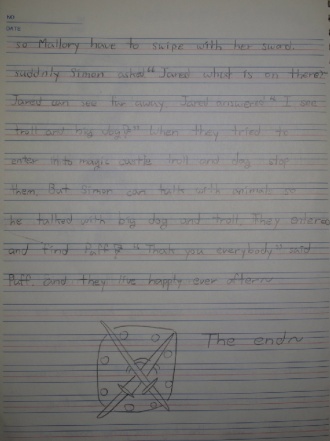 NO
DATE
so Mallory have to swipe with her sword.
suddenly Simon asked "Jared what is on there?"
Jared can see far away. Jared answered "I see
troll and big dog" When they tried to
enter in to magic castle troll and dog stop
them. But Simon can talk with animals so
he talked with big dog and troll. They entered
and find Puff "Thank you everybody" said
Puff. and they live happly ever after~
The end~